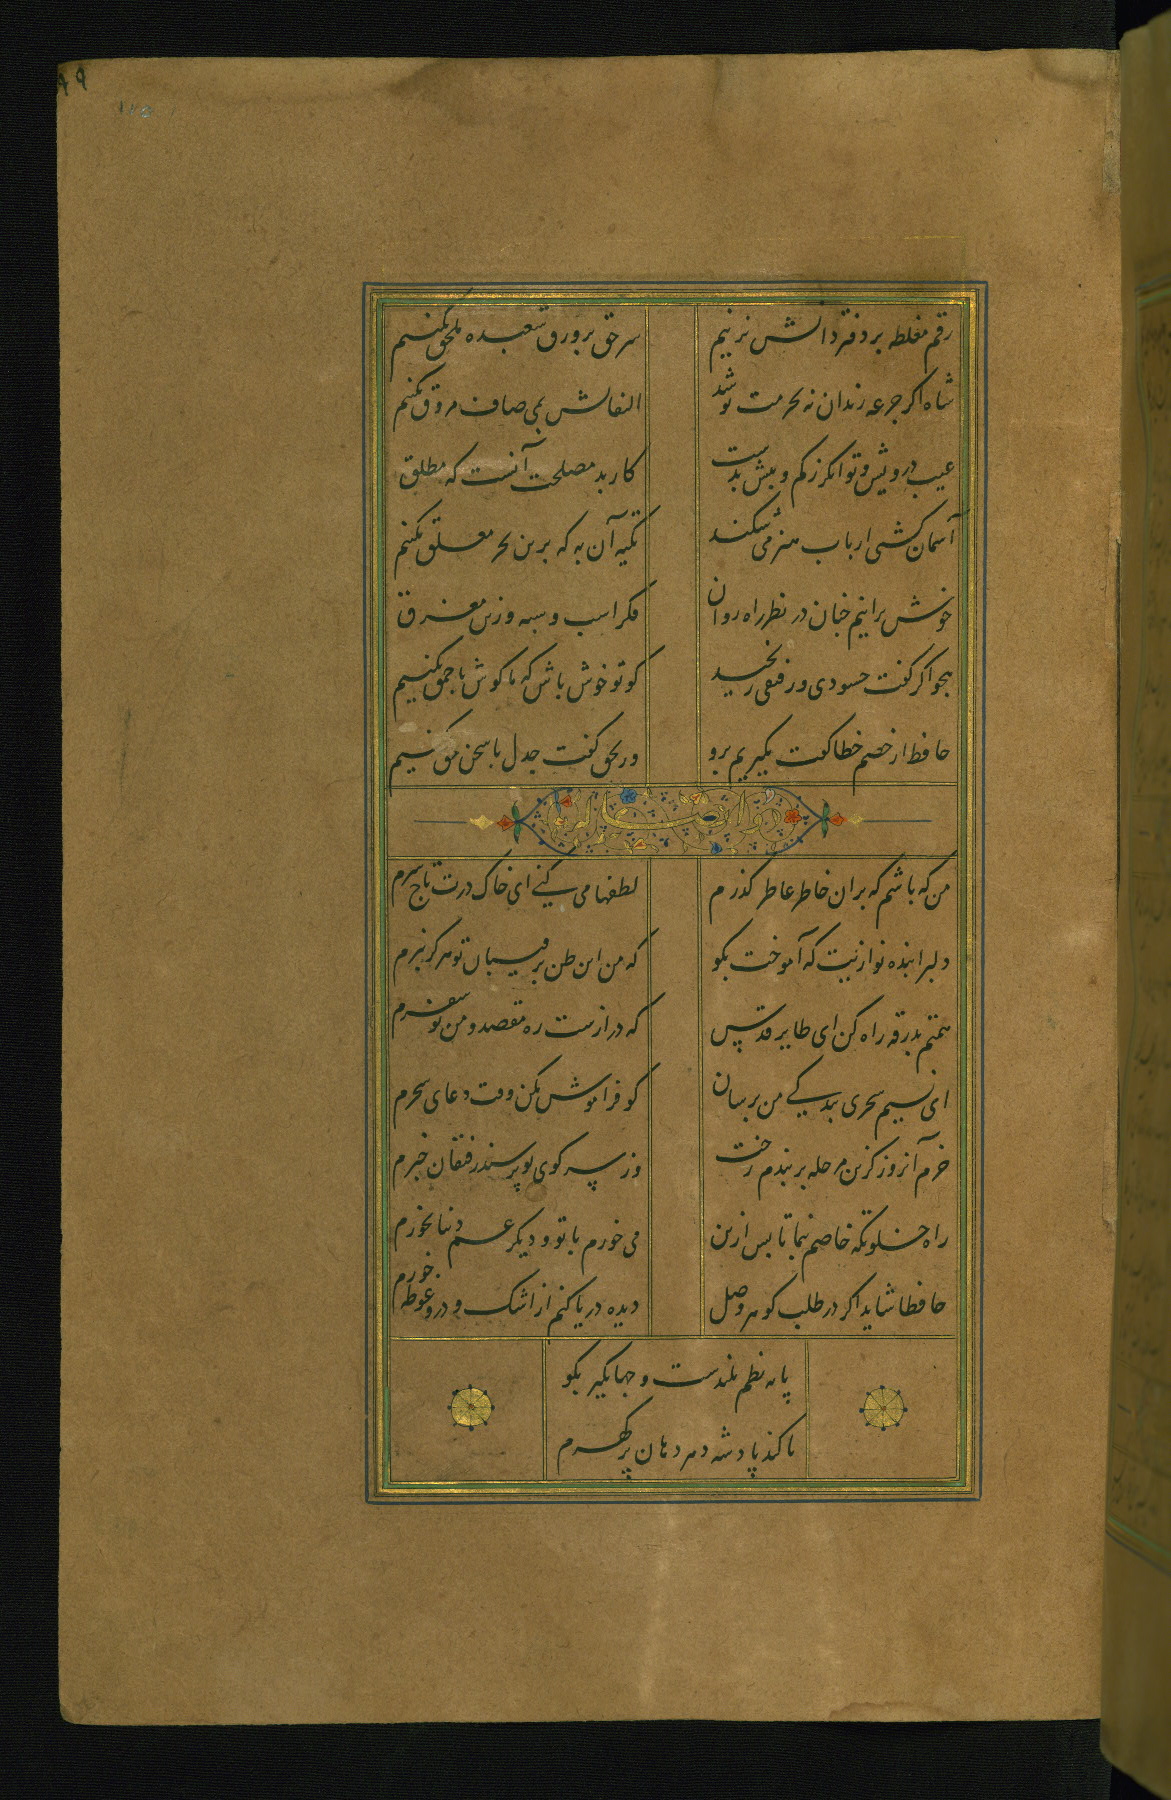 ۹۹
رقم مغلطه بر دفتر دانش نزنیم سر حق بر ورق شعبده ملحق نکنیم
شاه اکر جرعه رندان نه بحرمت نوشد التفاتش بمی صاف مروق نکنیم
عیب درویش و توانکر ز کم و بیش بدست کار بد مصلحت آنست که مطلق
آسمان کشتی ارباب هنر می شکند تکیه آن به که برین بحر معلق نکنیم
خوش برانیم جهان در نظر راه روان فکر اسب و سیه و زین مغرق
هجو اکر کفت حسودی و رفیقی رنجید کو تو خوش باش که ما کوش باحمق نکنیم
حافظ ار خصم خطا کفت نکیریم برو ور بحق کفت جدل با سخن حق نکنیم
من که باشم که بران خاطر عاطر کذرم لطفها می کنی ای خاک درت تاج سرم
دلبرا بنده نوازیت که آموخت بکو که من این ظن برقیبان تو هرکز نبرم
همتم بدرقه راه کن ای طایر قدس که درازست ره مقصد و من نو سفرم
ای نسیم سحری بندکی من برسان کو فراموش مکن وقت دعای سحرم
خرم آنروز کزین مرحله بربندم رخت وز سر کوی تو پرسند رفیقان خبرم
راه خلوتکه خاصم بنما تا پس ازین می خورم با تو و دیکر غم دنیا نخورم
حافظا شاید اکر در طلب کوهر وصل دیده دریا کنم از اشک و درو غوطه خورم
پایه نظم بلندست و جهانکیر بکو
تا کند پادشه دهر دهان پر کهرم